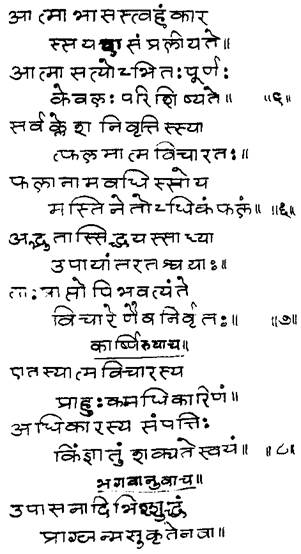 आत्माभासस्त्वहंकार
स्सयदा संप्रलीयते॥
आत्मासत्योऽभितःपूर्णः
केवलः परिशिष्यते॥ ॥५॥
सर्वक्लेशनिवृत्तिस्स्या
त्फलमात्मविचारतः॥
फलानामवधिस्सोय
मस्तिनेतोऽधिकंफलं॥ ॥६॥
अद्भुतास्सिद्धयस्साध्या
उपायांतरतश्चयाः॥
ताःप्राप्तोपिभवत्यंते
विचारेणैवनिर्वृतः॥ ॥७॥
कार्ष्णिरुवाच॥
एतस्यात्मविचारस्य
प्राहुःकमधिकारिणं॥
अधिकारस्य संपत्तिः
किंज्ञातुं शक्यतेस्वयं॥ ॥८॥
भगवानुवाच॥
उपासनादिभिश्शुद्धं
प्राग्जन्मसुकृतेनवा॥